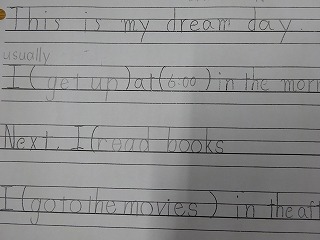 This is my dream day.
usually
I (get up) at (6:00) in the morn
Next, I (read books
I (go to the movies) in the aft